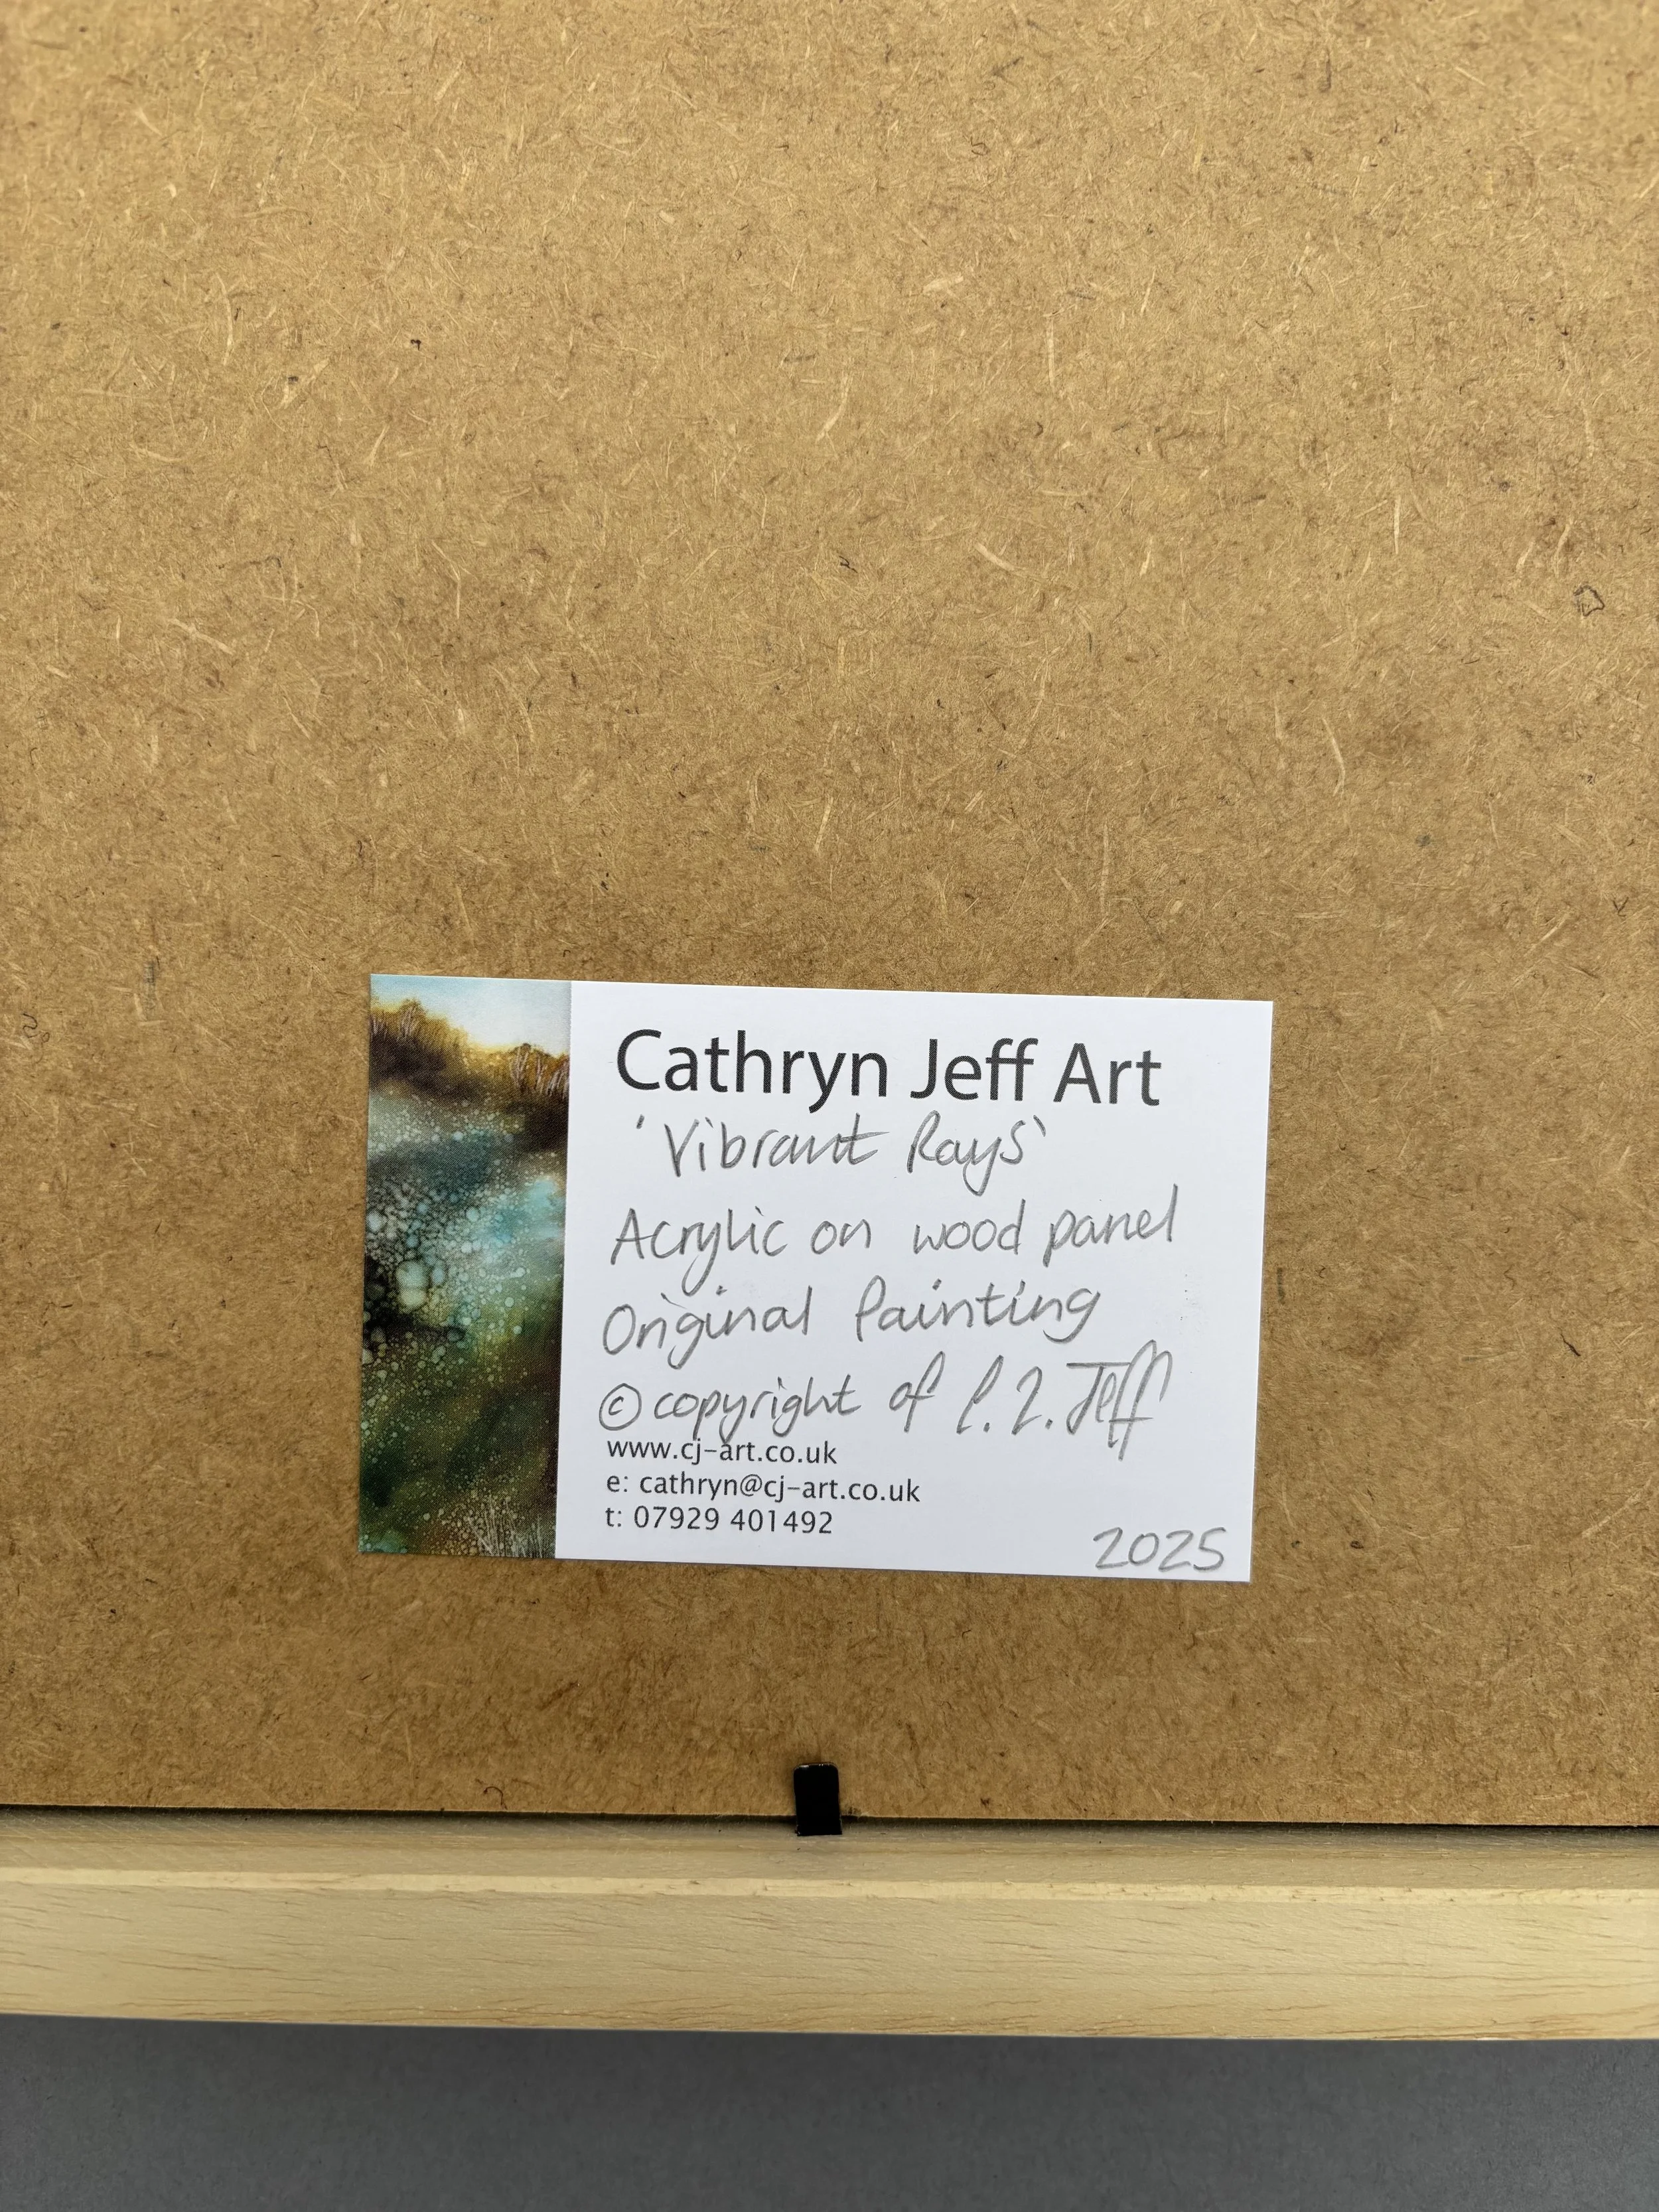 Cathryn Jeff Art
'Vibrant Rays'
Acrylic on wood panel
Original Painting
© copyright of C. L. Jeff
www.cj-art.co.uk
e: cathryn@cj-art.co.uk
t: 07929 401492
2025